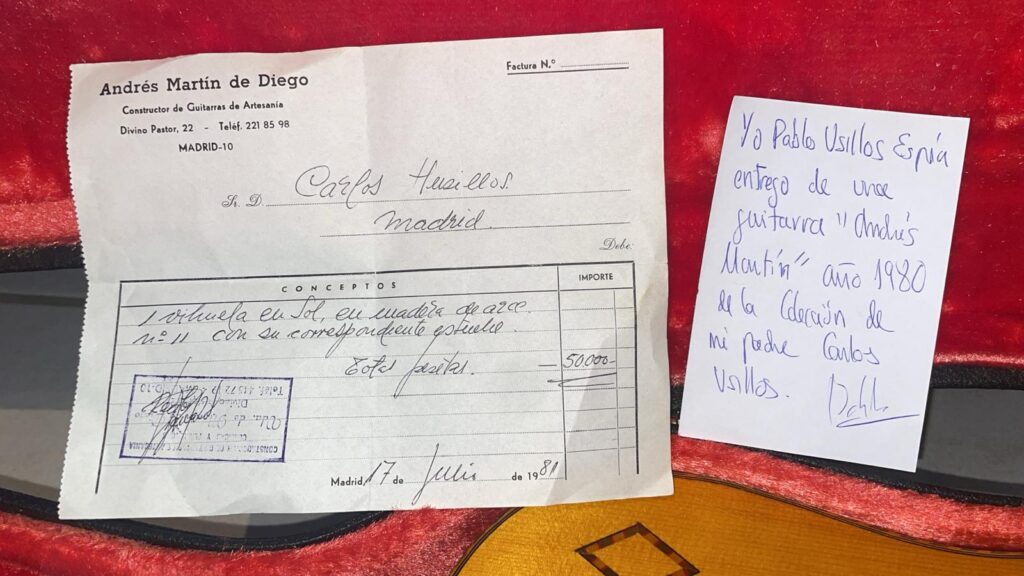 Andrés Martín de Diego
Constructor de Guitarras de Artesanía
Divino Pastor, 22 - Teléf. 221 85 98
MADRID-10
Factura N.º
Sr. D. Carlos Husillos
Madrid.
Debe:
CONCEPTOS IMPORTE
1 vihuela en Sol, en madera de arce
nº 11 con su correspondiente estuche.
Total pesetas. 50.000-
Madrid, 17 de Julio de 1981
Yo Pablo Usillos Espía
entrego de una
guitarra "Andrés
Martín" año 1980
de la Colección de
mi padre Carlos
Usillos.